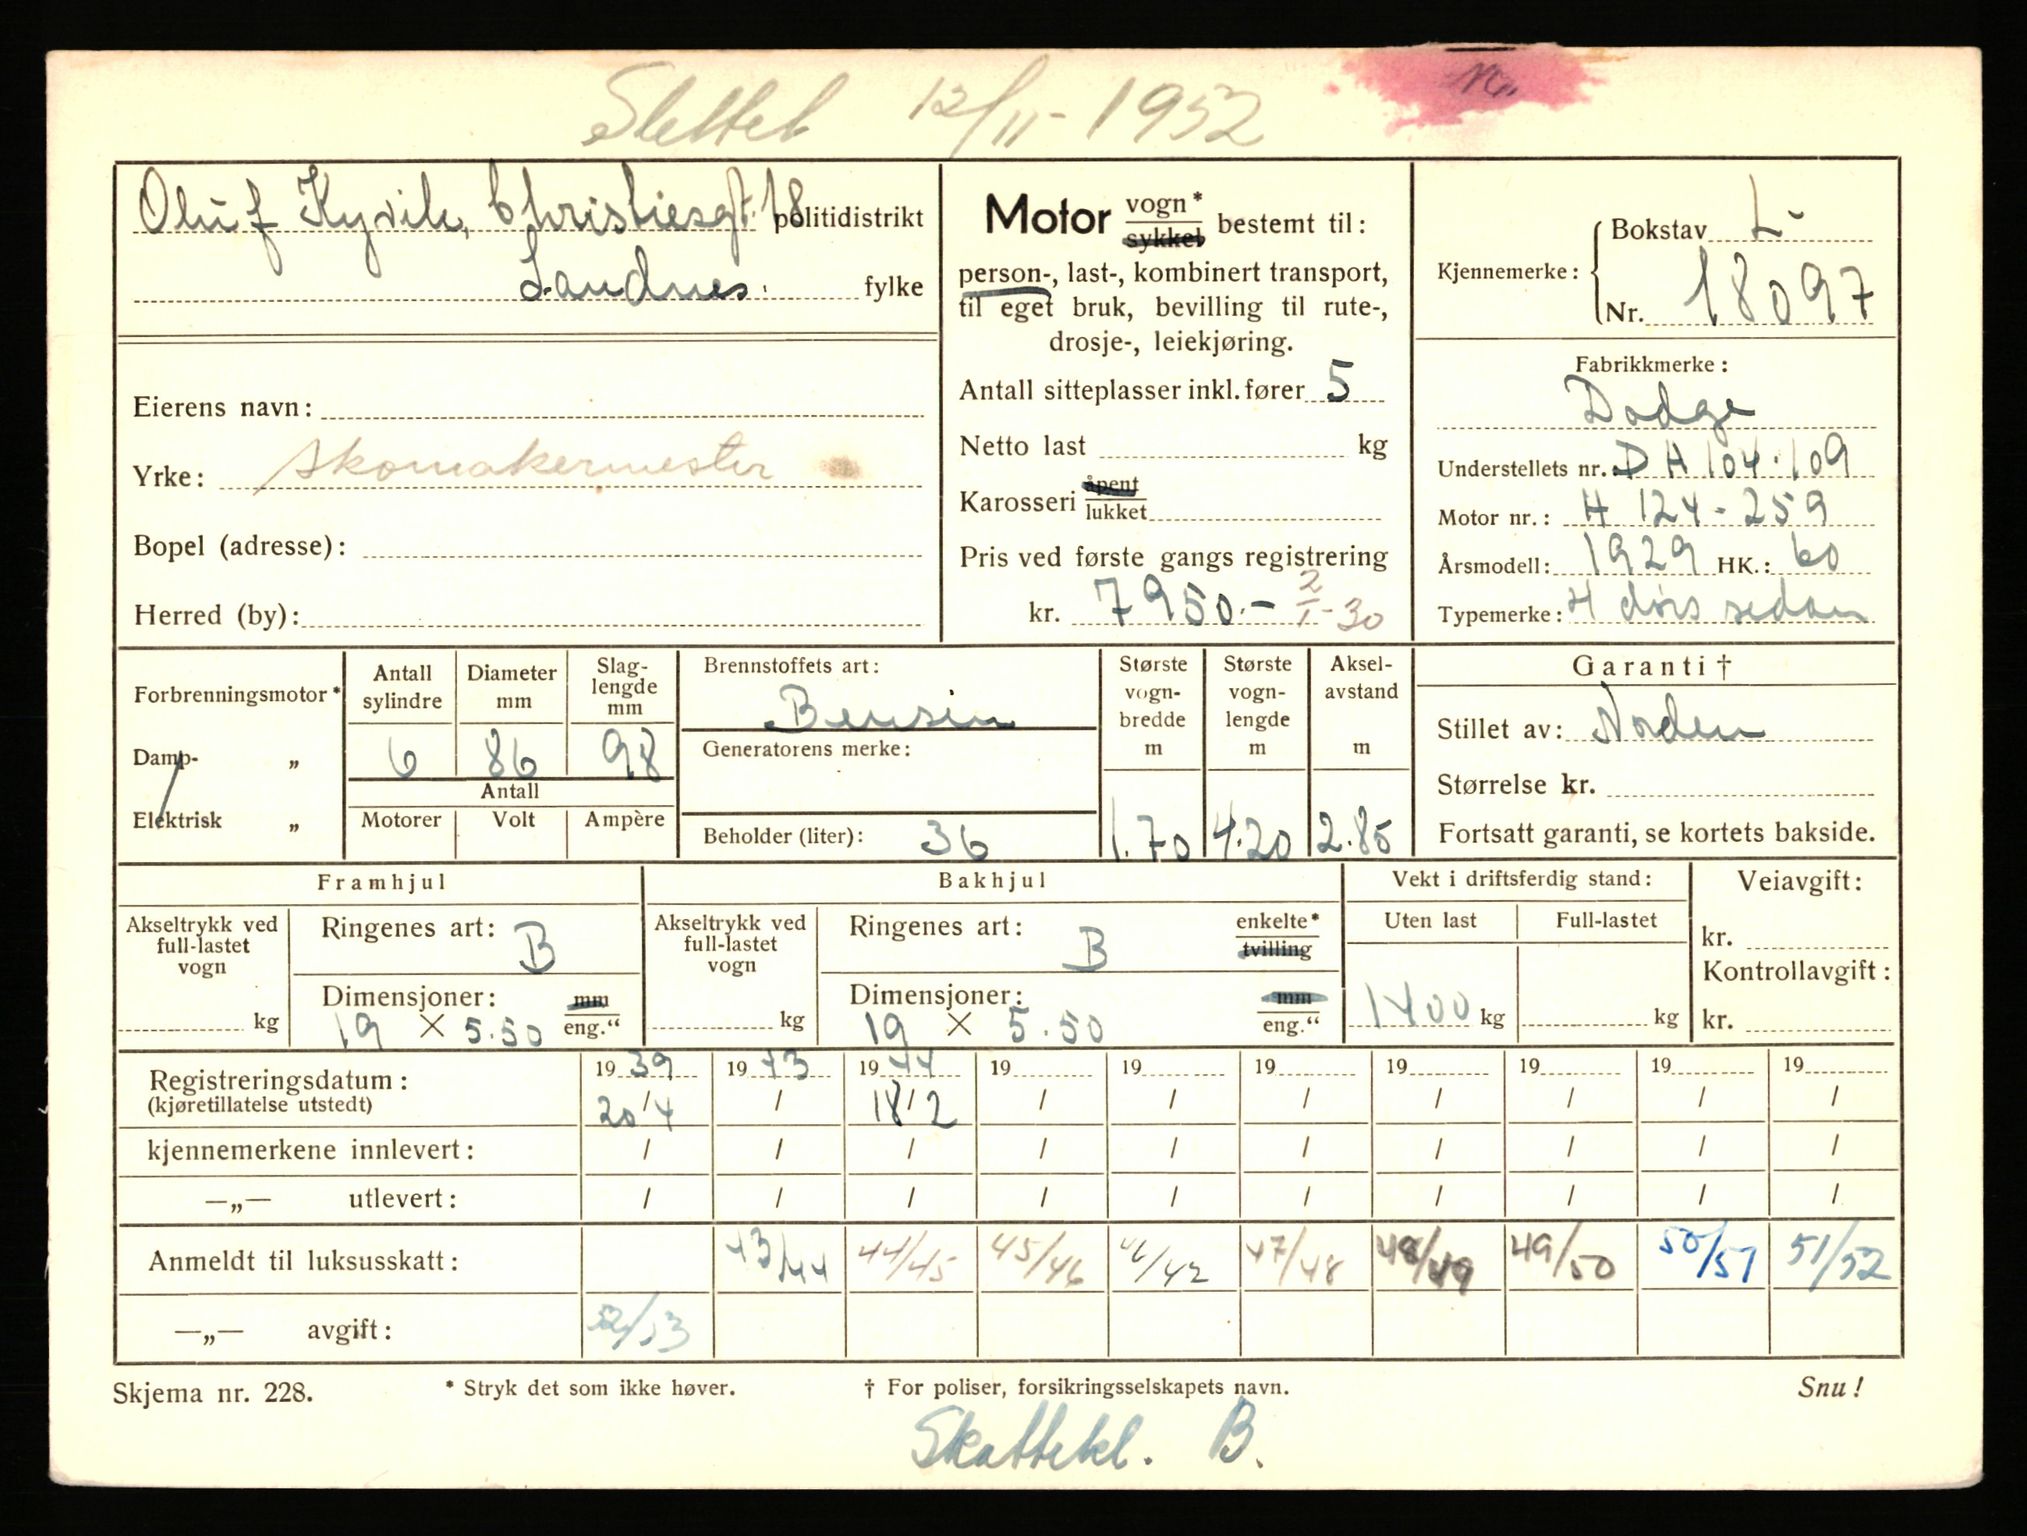 Slettet 12/11-1952
Oluf Kyvik, Christiesgt. 18 politidistrikt
Sandnes. fylke
Eierens navn:
Yrke: Skomakermester
Bopel (adresse):
Herred (by):
Motor vogn* sykkel bestemt til:
person-, last-, kombinert transport,
til eget bruk, bevilling til rute-,
drosje-, leiekjøring.
Antall sitteplasser inkl. fører 5
Netto last kg
Karosseri åpent lukket
Pris ved første gangs registrering
kr. 7950.- 2/1-30
Kjennemerke: Bokstav L-
Nr. 18097
Fabrikkmerke:
Dodge
Understellets nr. D H 104-109
Motor nr.: H 124-259
Årsmodell: 1929 HK.: 60
Typemerke: 4 dørs sedan
Forbrenningsmotor*
Damp- „
Elektrisk „
Antall sylindre 6
Diameter mm 86
Slag-lengde mm 98
Antall
Motorer Volt Ampère
Brennstoffets art:
Bensin
Generatorens merke:
Beholder (liter): 36
Største vogn-bredde m 1.70
Største vogn-lengde m 4.20
Aksel-avstand m 2.85
Garanti †
Stillet av: Norden
Størrelse kr.
Fortsatt garanti, se kortets bakside.
Framhjul
Akseltrykk ved full-lastet vogn kg
Ringenes art: B
Dimensjoner: mm
19 × 5.50 eng."
Bakhjul
Akseltrykk ved full-lastet vogn kg
Ringenes art: B enkelte* tvilling
Dimensjoner: mm
19 × 5.50 eng."
Vekt i driftsferdig stand:
Uten last Full-lastet
1400 kg kg
Veiavgift:
kr.
Kontrollavgift:
kr.
Registreringsdatum: 19 39 19 43 19 44 19 19 19 19 19 19 19
(kjøretillatelse utstedt) 20/4 / 18/2 / / / / / / /
kjennemerkene innlevert: / / / / / / / / / /
—„— utlevert: / / / / / / / / / /
Anmeldt til luksusskatt: 43/44 44/45 45/46 47/48 48/49 49/50 50/51 51/52
—„— avgift: 52/53
Skjema nr. 228. * Stryk det som ikke høver. † For poliser, forsikringsselskapets navn. Snu!
Skattekl. B.